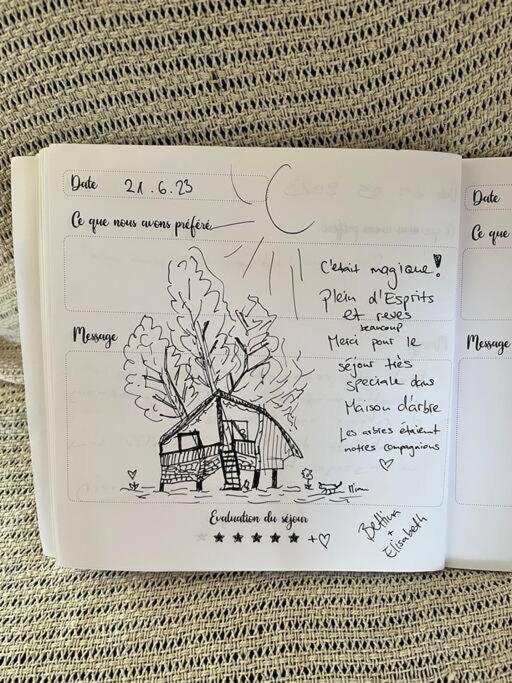 Date 21.6.23
Ce que nous avons préféré
C'était magique!
Plein d'Esprits
et reves
beaucoup
Merci pour le
séjour très
speciale dans
Maison d'arbre
Los arbres étaient
notres compagnions
Message
Evaluation du séjour
+
Bettina
+
Elisabeth
Date
Ce que
Message